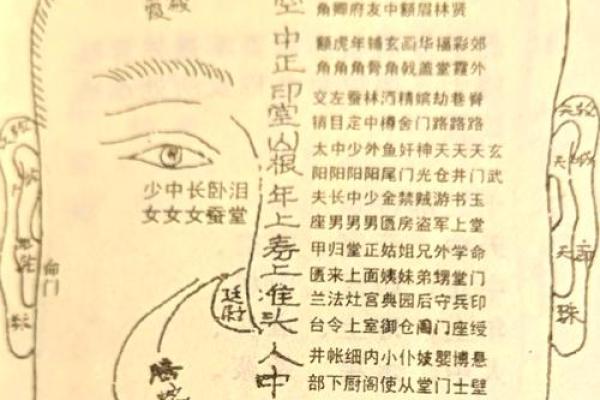 霞
角卿府友中额眉林贤
额虎年辅玄画华福彩郊
角角角骨角戟盖堂霞外
交左蚕林酒精嫔劫巷脊
销目定中樽舍门路路路
太中少外鱼奸神天天天玄
阳阳阳阳尾门光仓井门武
夫长中少金禁贼游书玉
座男男男匮房盗军上堂
甲归堂正姑姐兄外学命
匮来上面姨妹弟甥堂门
兰法灶宫典园后守兵印
台令上室御仓阁门座绶
井帐细内小仆妓婴博悬
部下厨阁使从堂门士壁
中正印堂山根年上寿上准头人中
少中长卧泪
女女女蚕堂
廷尉
命门
珠